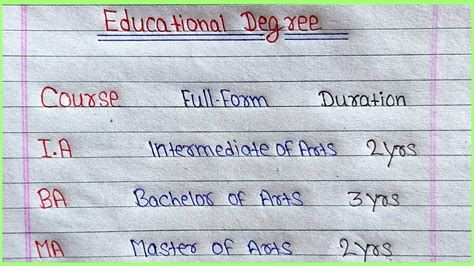 Educational Degree
Course Full-Form Duration
I.A Intermediate of Arts 2yrs
BA Bachelor of Arts 3yrs
MA Master of Arts 2yrs